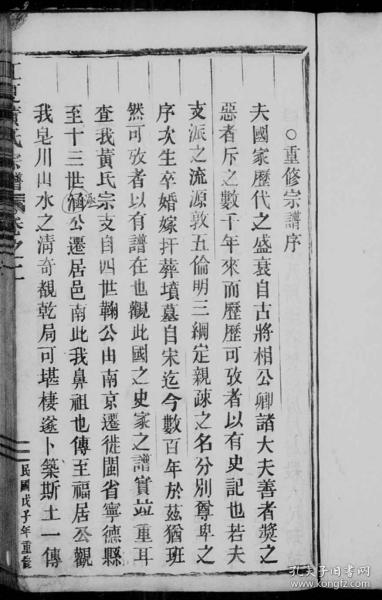 ○重修宗譜序
夫國家歷代之盛衰自古將相公卿諸大夫善者奬之
惡者斥之數千年來而歷歷可攷者以有史記也若夫
支派之流源敦五倫明三綱定親疎之名分別尊卑之
序次生卒婚嫁扞葬墳墓自宋迄今數百年於茲猶班
然可攷者以有譜在也觀此國之史家之譜實竝重耳
查我黃氏宗支自四世鞠公由南京遷徙閩省寧德縣
至十三世公遷居邑南此我鼻祖也傳至福居公觀
我皂川山水之清奇覩乾局可堪棲遂卜築斯土一傳
江夏黃氏宗譜 卷之一
民國戊子年重修
孔夫子旧书网